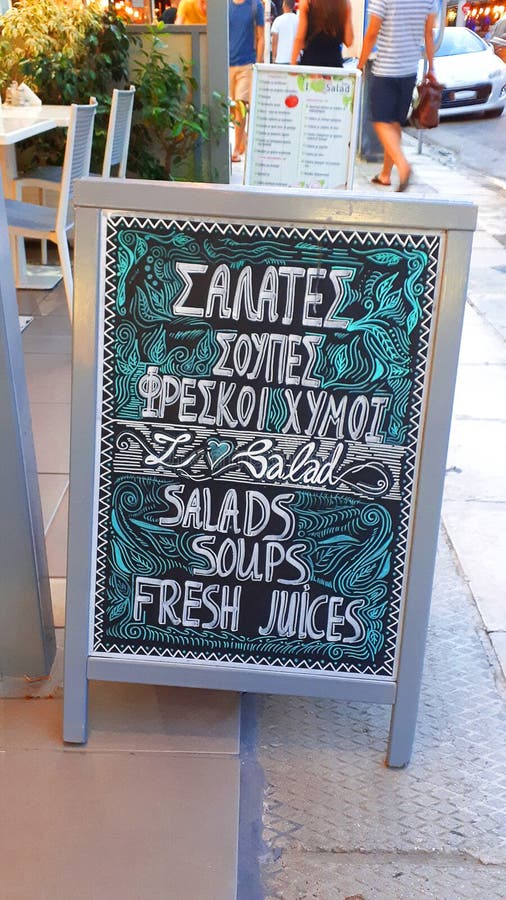 I Salad
ΣΑΛΑΤΕΣ
ΣΟΥΠΕΣ
ΦΡΕΣΚΟΙ ΧΥΜΟΙ
I ♥ Salad
SALADS
SOUPS
FRESH JUICES